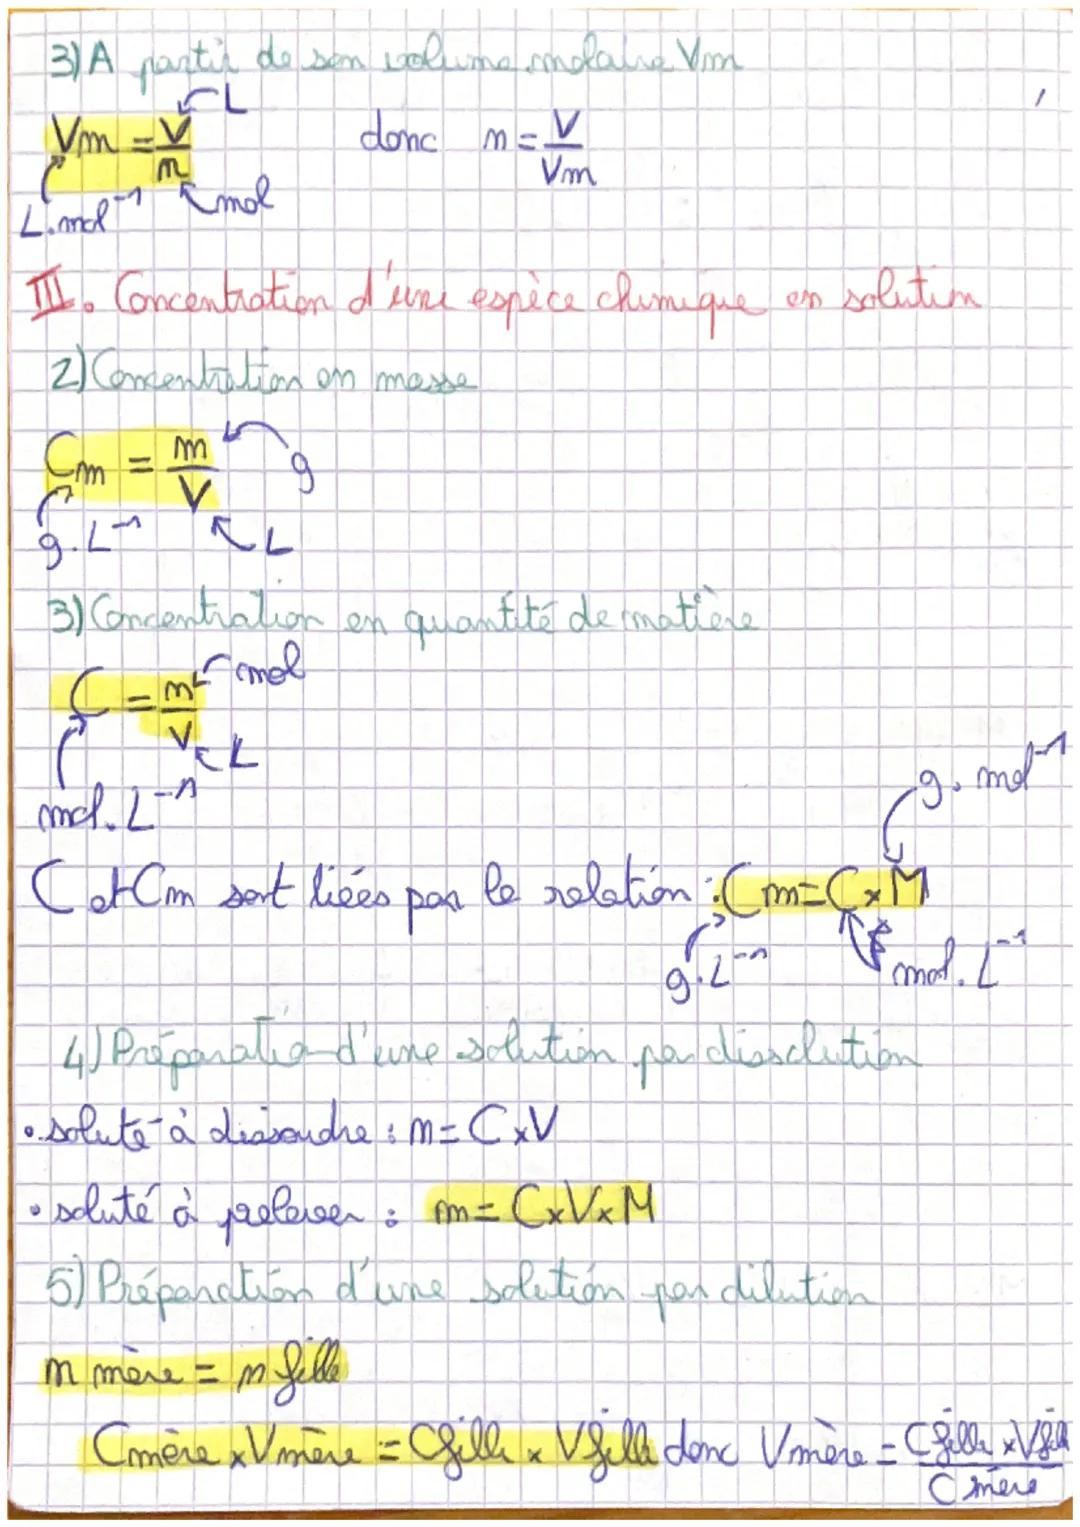 3) A partir de son volume molaire Vm
Vm = V/n donc n = V/Vm
L
L.mol⁻¹ mol
III. Concentration d'une espèce chimique en solution
2) Concentration en masse
Cm = m/V
g
g.L⁻¹ L
3) Concentration en quantité de matière
C = n/V
mol
L
mol.L⁻¹
g.mol⁻¹
C et Cm sont liées par la relation : Cm = C×M
g.L⁻¹ mol.L⁻¹
4) Préparation d'une solution par dissolution
• soluté à dissoudre : n = C×V
• soluté à prélever : m = C×V×M
5) Préparation d'une solution par dilution
n mère = n fille
Cmère × Vmère = Cfille × Vfille donc Vmère = Cfille × Vfill/Cmère